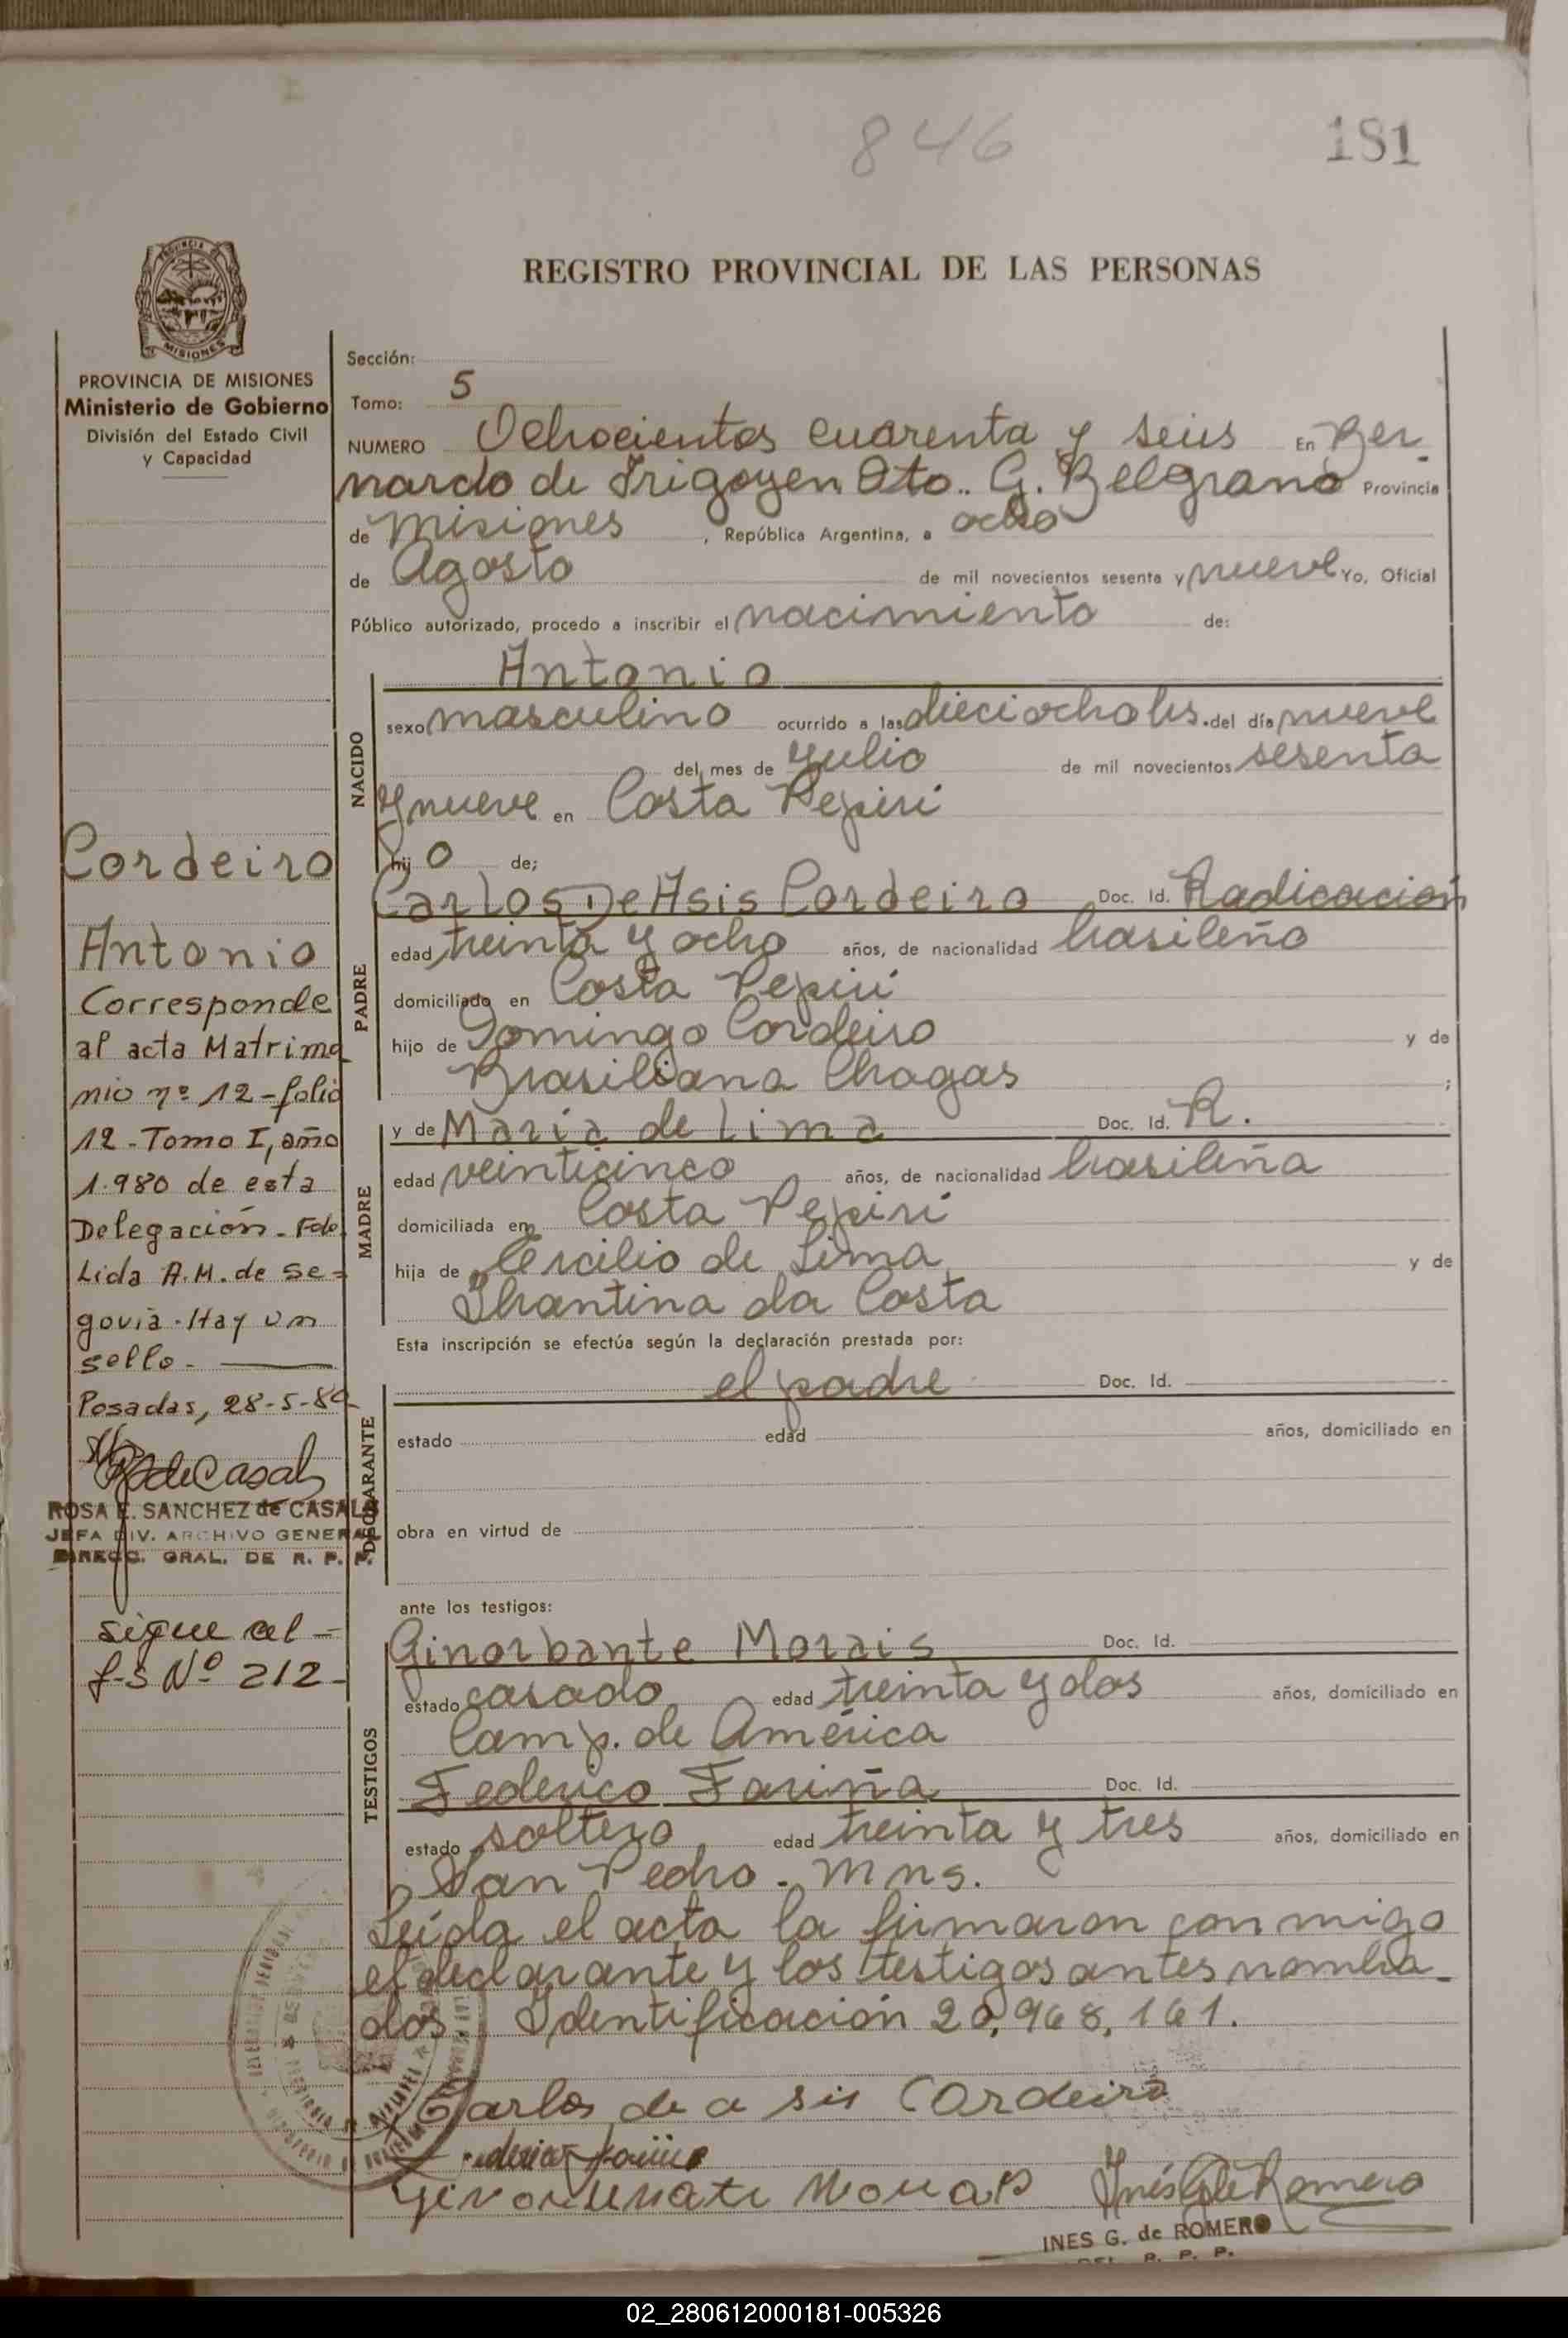 846
181
REGISTRO PROVINCIAL DE LAS PERSONAS
PROVINCIA DE MISIONES
Ministerio de Gobierno
División del Estado Civil
y Capacidad
Sección:
Tomo: 5
NUMERO Ochocientos cuarenta y seis En Ber-
nardo de Irigoyen Dto.. G. Belgrano Provincia
de Misiones, República Argentina, a ocho
de Agosto de mil novecientos sesenta y nueve Yo, Oficial
Público autorizado, procedo a inscribir el nacimiento de:
NACIDO
Antonio
sexo masculino ocurrido a las dieciocho hs. del día nueve
del mes de Julio de mil novecientos sesenta
y nueve en Costa Pepirí
hij o de;
PADRE
Carlos De Asis Cordeiro Doc. Id. Radicación
edad treinta y ocho años, de nacionalidad brasileño
domiciliado en Costa Pepirí
hijo de Domingo Cordeiro y de
Brasiliana Chagas ;
MADRE
y de Maria de Lima Doc. Id. R.
edad veinticinco años, de nacionalidad brasileña
domiciliada en Costa Pepirí
hija de Ercilio de Lima y de
da Costa
Esta inscripción se efectúa según la declaración prestada por:
DECLARANTE
el padre Doc. Id.
estado edad años, domiciliado en
obra en virtud de
ante los testigos:
TESTIGOS
Ginorbante Morais Doc. Id.
estado casado edad treinta y dos años, domiciliado en
Camp. de América
Federico Fariña Doc. Id.
estado soltero edad treinta y tres años, domiciliado en
San Pedro - Mnes.
Leída el acta la firmaron conmigo
el declarante y los testigos antes nombra-
dos. Identificación 20.968.161.
Carlos de a sis Cordeiro
Inés G de Romero
INES G. de ROMERO
DEL. R. P. P.
Cordeiro
Antonio
Corresponde
al acta Matrimo
nio nº 12-folio
12-Tomo I, año
1.980 de esta
Delegación-Fdo
Lida A.M. de Se-
govia. Hay un
sello-
Posadas, 28-5-80
R de Casals
ROSA E. SANCHEZ de CASALS
JEFA DIV. ARCHIVO GENERAL
DIRECC. GRAL. DE R. P. P.
sigue al -
f-S Nº 212-
02_280612000181-005326